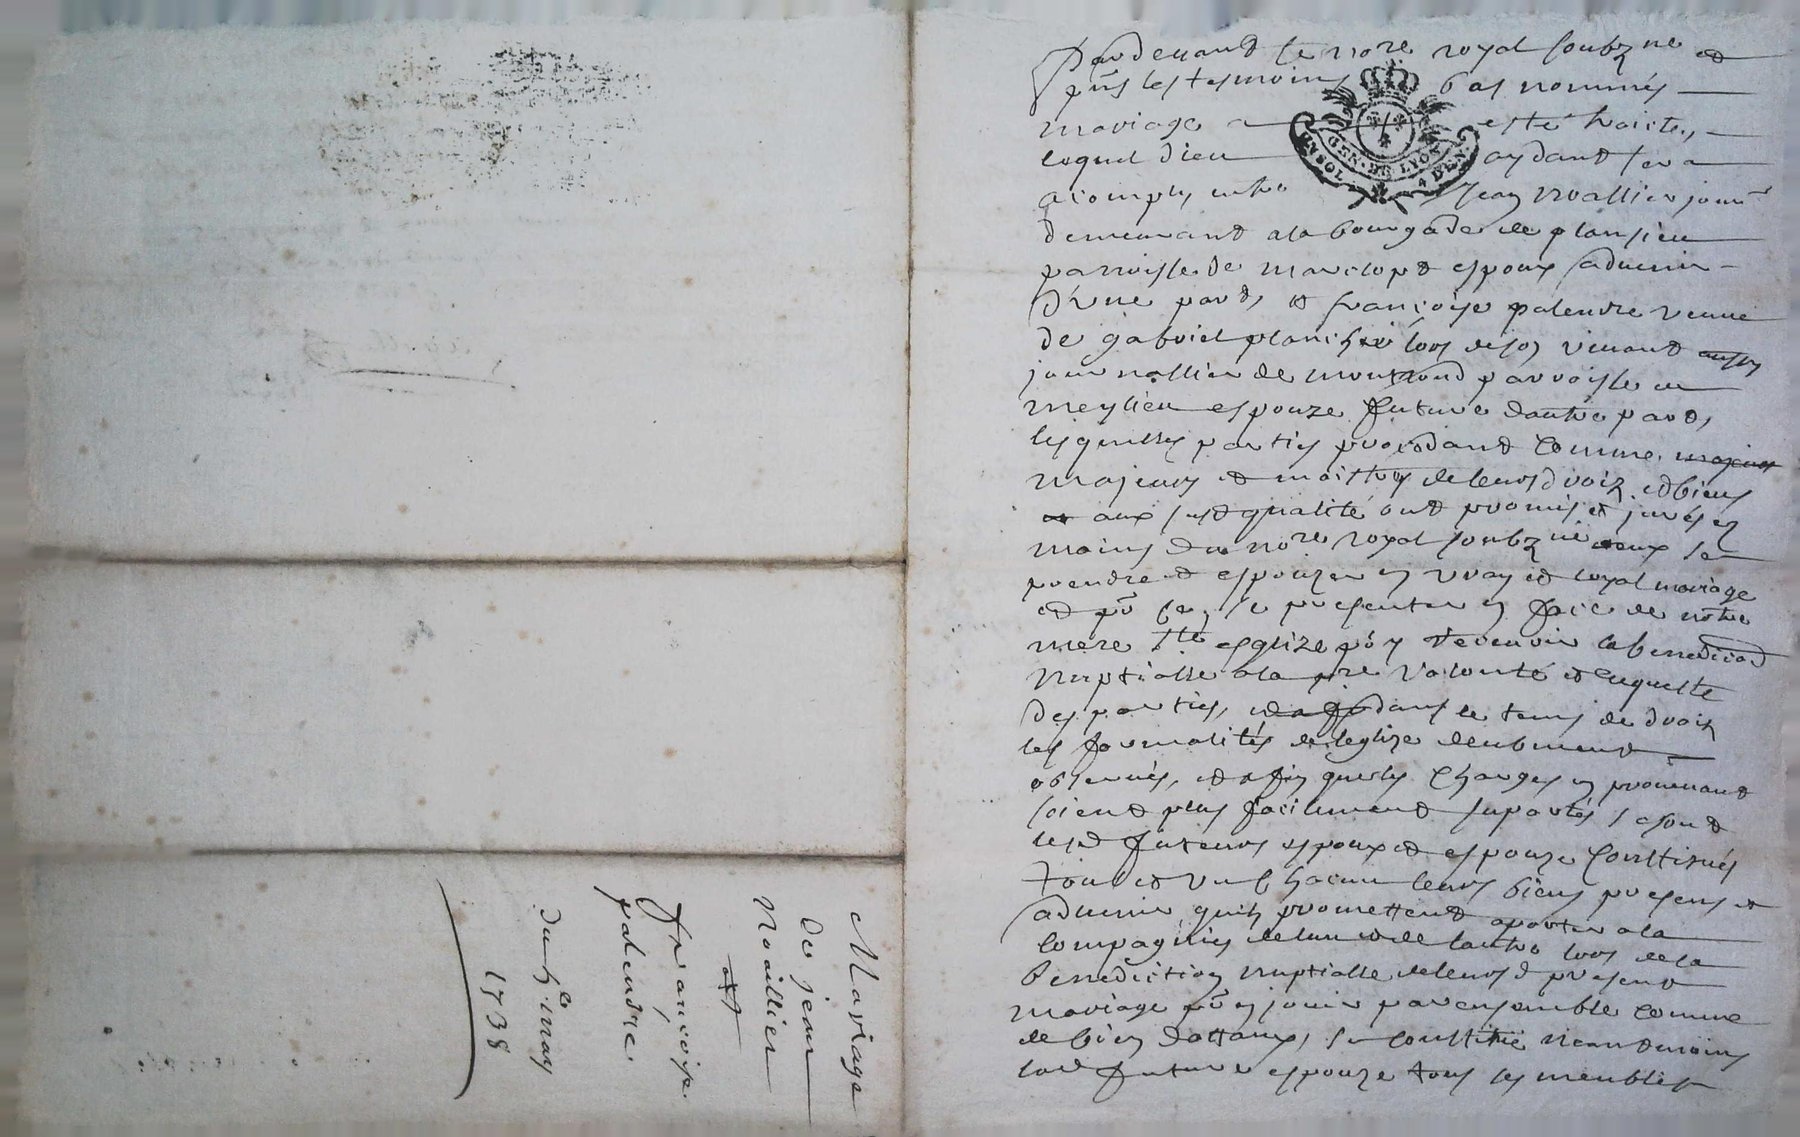 Mariage
de jean
Noaillier
et
Françoise
palendre
du 5e may
1738
Pardevant le no.re royal soubz.né et
pñs les tesmoins bas nommés
mariage a esté traicté,
lequel dieu aydant sera
acomply entre Jean Noallier jour.
demeurant a la bourgade de plansieu
parroisse de Marclopt espoux advenir
d'une part, et françoise palendre veuve
de gabriel planchet lors de son vivant
journallier de montrond parroisse de
meylieu espouze future dautre part,
lesquelles parties procedant comme
majeurs et maistres de leurs droiz et biens
aux susd qualité ont promis et jurés es
mains du no.re royal soubz.né se
prendre et espouzer en vray et loyal mariage
et pr ce, se presenter en face de notre
mere Ste esglize pr y recevoir la benediction
nuptialle a la pre volonté et requeste
des parties, dans le tems de droit
les formalités de leglize deubment
observés, et afin que les charges en provenant
soient plus facilement suportés se sont
lesd futeurs espoux et espouze constitués
tous et un chacun leurs biens presens et
advenir, quilz promettent aporter a la
compagnie de lun et de lautre lors de la
benediction nuptialle de leursd present
mariage pr en jouir par ensemble comme
de bien dottaux, se constitue neantmoins
lad future espouze tous les meubles
GEN. DE LYON
UN SOL 4 DEN.